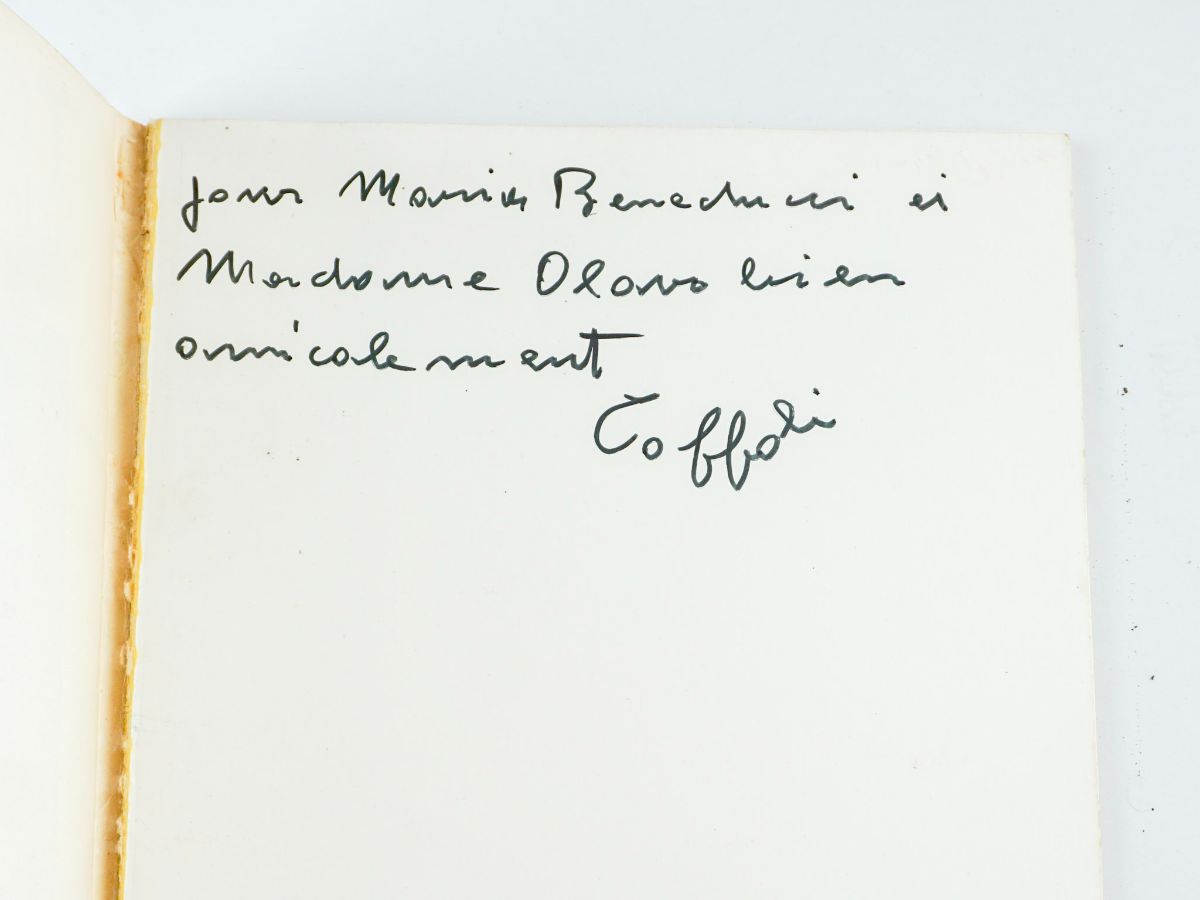 pour Maria Beneducci et
Madame Olavo bien
amicalement
Toffoli